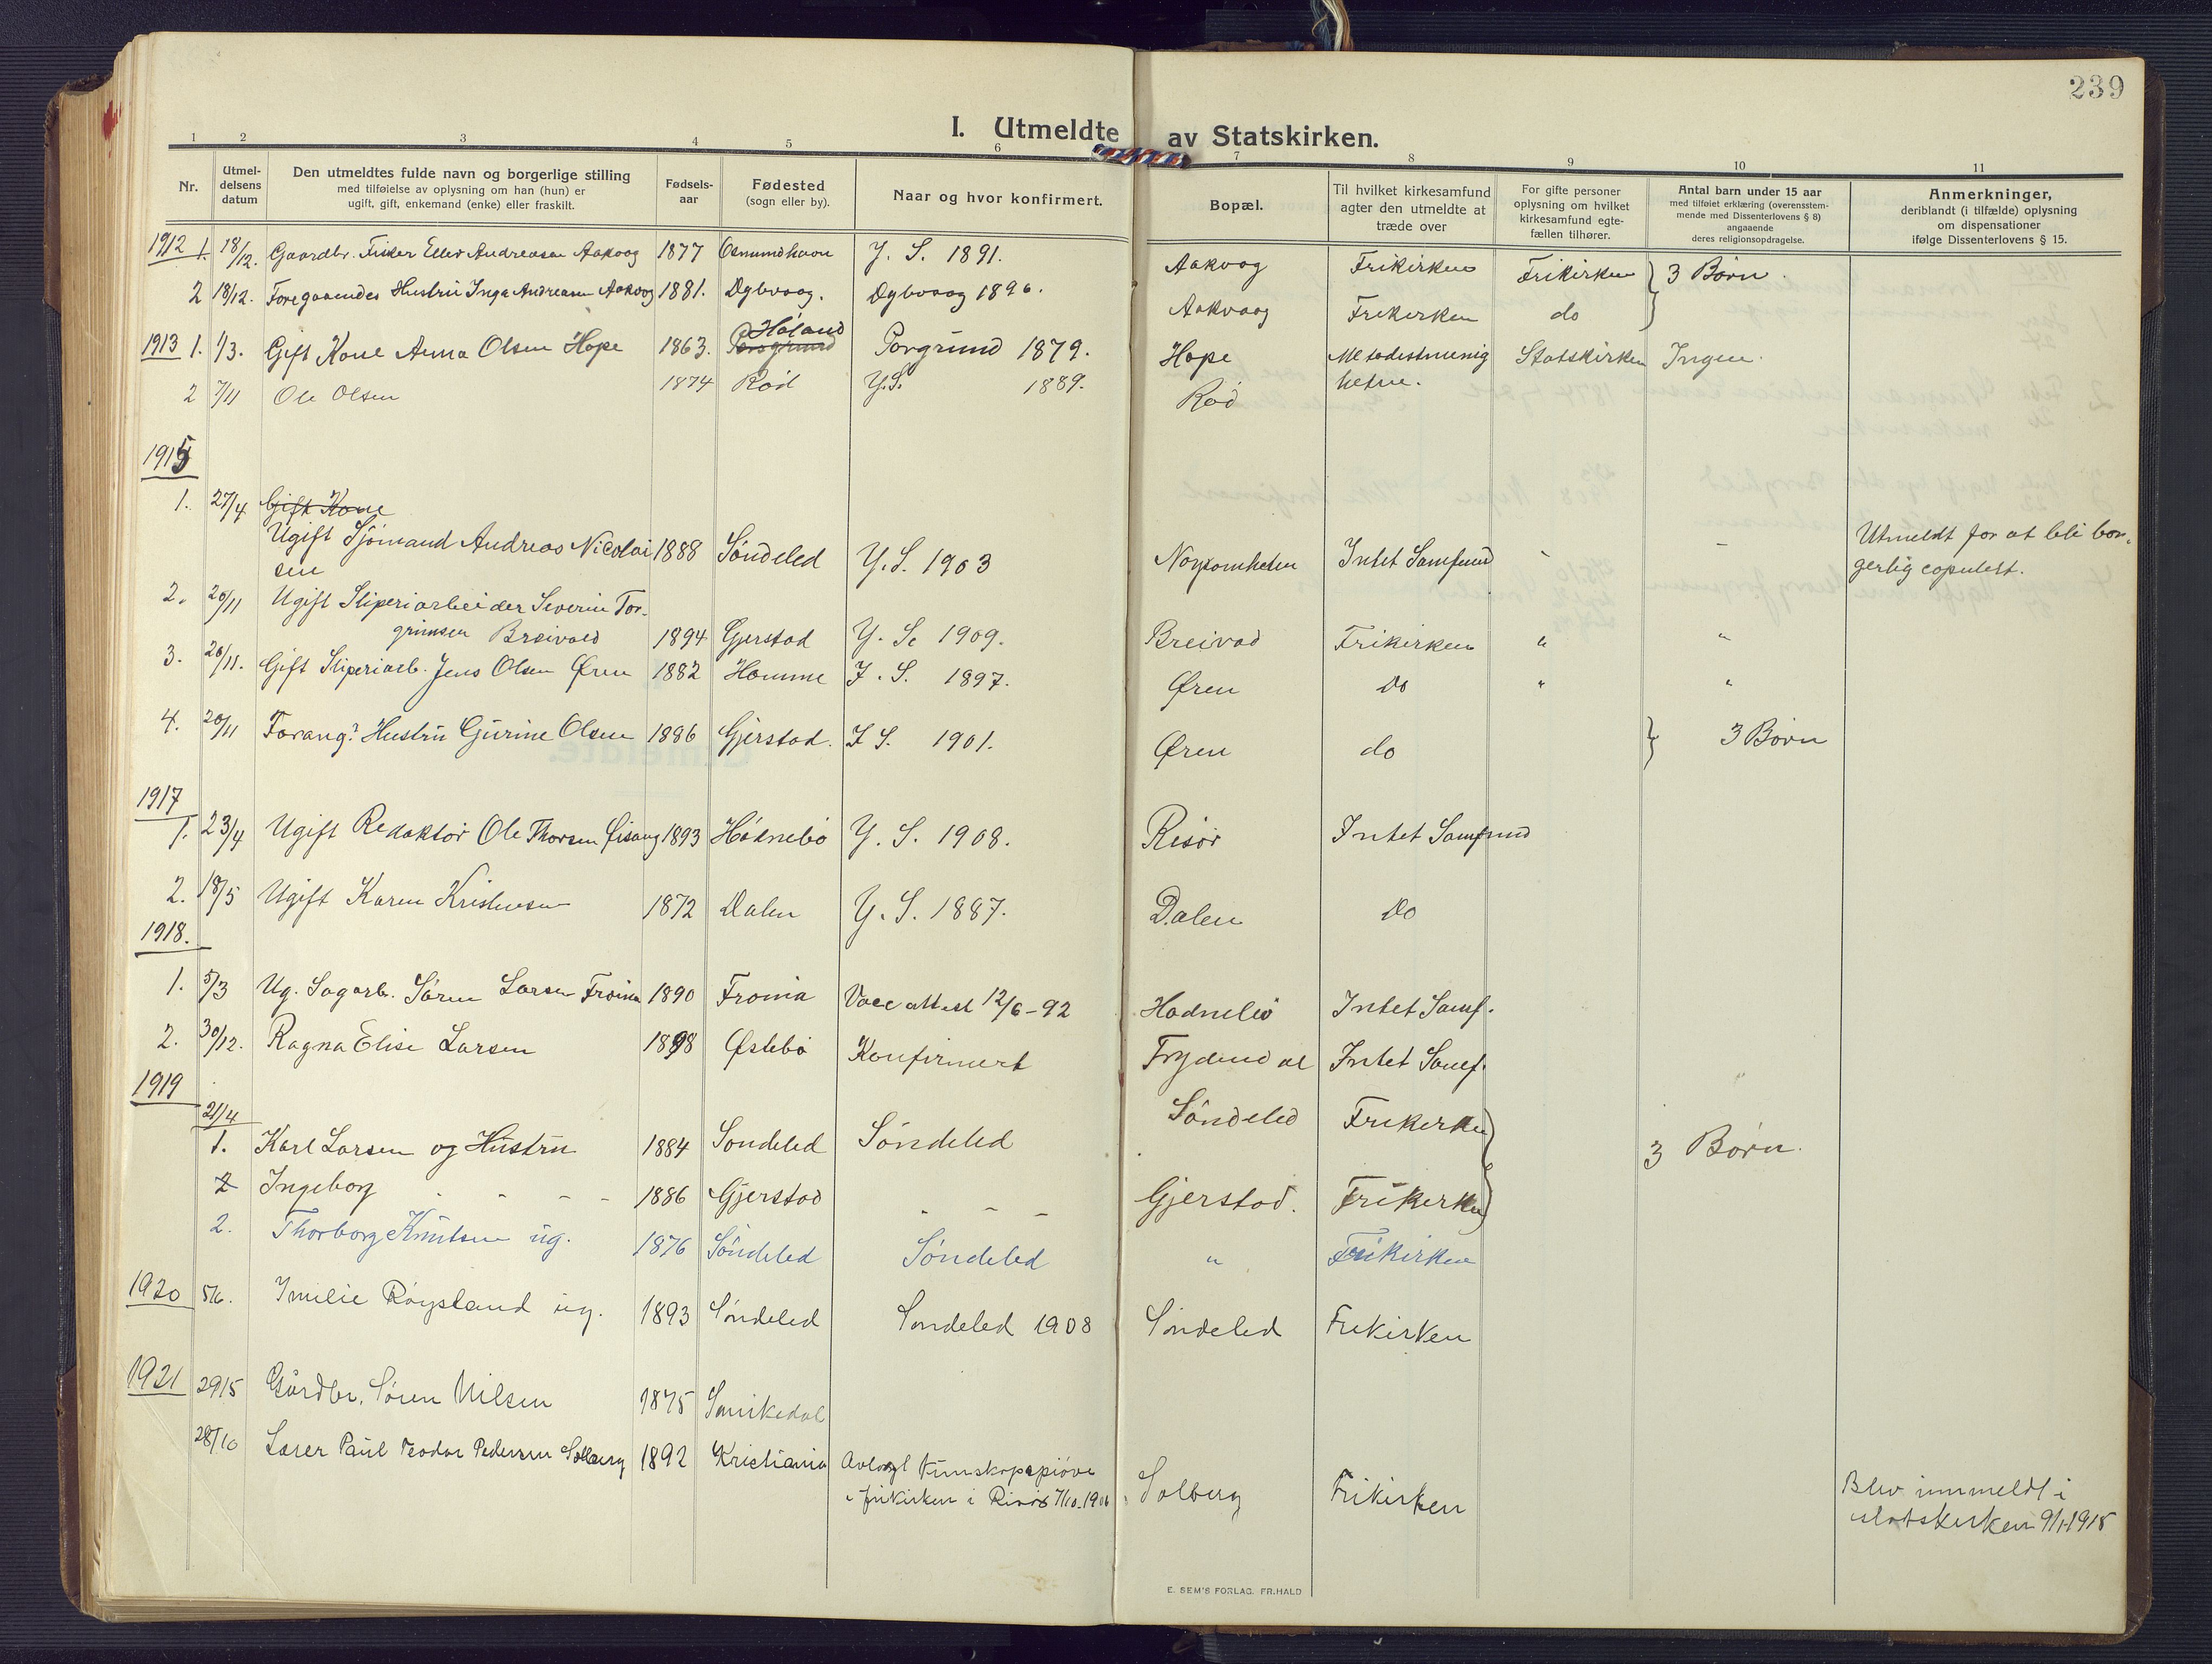 239
I. Utmeldte av Statskirken.
1 2 3 4 5 6 7 8 9 10 11
Nr.
Utmel-
delsens
datum
Den utmeldtes fulde navn og borgerlige stilling
med tilføielse av oplysning om han (hun) er
ugift, gift, enkemand (enke) eller fraskilt.
Fødsels-
aar
Fødested
(sogn eller by).
Naar og hvor konfirmert.
Bopæl.
Til hvilket kirkesamfund
agter den utmeldte at
træde over
For gifte personer
oplysning om hvilket
kirkesamfund egte-
fællen tilhører.
Antal barn under 15 aar
med tilføiet erklæring (overensstem-
mende med Dissenterlovens § 8)
angaaende
deres religionsopdragelse.
Anmerkninger,
deriblandt (i tilfælde) oplysning
om dispensationer
ifølge Dissenterlovens § 15.
1912 1. 18/12. Gaardbr. Fisker Ellev Andreasen Aakvog 1877 Osmundhavn Y. S. 1891. Aakvog Frikirken Frikirken } 3 Børn.
2 18/12. Foregaaendes Hustru Inga Andreasen Aakvog 1881. Dybvaag. Dybvaag 1896. Aakvaag Frikirken do
1913 1. 1/3. Gift Kone Anna Olsen Hope 1863. Porsgrund Høland Porgrund 1879. Hope Metodistmenig Statskirken Ingen.
heten.
2 7/11 Ole Olsen 1874 Rød Y.S. 1889. Rød
1915
1. 27/4 Gift Kone
Ugift Sjømand Andreas Nicolai 1888 Søndeled Y. S. 1903 Noysomheten Intet Samfund - - Utmeldt for at bli bor-
sen gerlig copulert.
2. 20/11 Ugift Sliperiarbeider Severin Tor-
grimsen Breivad 1894 Gjerstad Y. S. 1909. Breivad Frikirken " "
3. 20/11. Gift Sliperiarb. Jens Olsen Øren 1882 Homme I. S. 1897. Øren Do " "
4. 20/11 Forang? Hustru Gurine Olsen 1886 Gjerstad. I S. 1901. Øren do } 3 Børn
1917
1. 23/4 Ugift Redaktør Ole Thorsen Øisang 1893 Hødnebø Y. S. 1908. Risør Intet Samfund
2. 18/5 Ugift Karen Kristensen 1872 Dalen Y. S. 1887. Dalen Do
1918.
1. 5/3 Ug. Sagarb. Søren Larsen Frøina 1890 Froina Vacc attest 12/6-92 Hødnebø Intet Samf.
2. 30/12. Ragna Elise Larsen 1898 Østebø Konfirmert Frydendal Intet Samf.
1919
21/4
1. Karl Larsen og Hustru 1884 Søndeled Søndeled Søndeled Frikirken } 3 Børn.
2 Ingeborg - - - - 1886 Gjerstad - - - Gjerstad. Frikirken
2. Thorborg Knutsen ug. 1876 Søndeled Søndeled " Frikirken
1920 5/6. Imilie Røysland ug. 1893 Søndeled Søndeled 1908 Søndeled Frikirken
1921 29/5 Gårdbr. Søren Nilsen 1875 Sanikedal
28/10 Lærer Paul Teodor Pedersen Solberg 1892 Kristiania Avlagt kunskapsprøve Solberg Frikirken Blev innmeldt i
i frikirken i Risør 7/10-1906 statskirken 9/1-1918
E. SEM'S FORLAG. FR.HALD